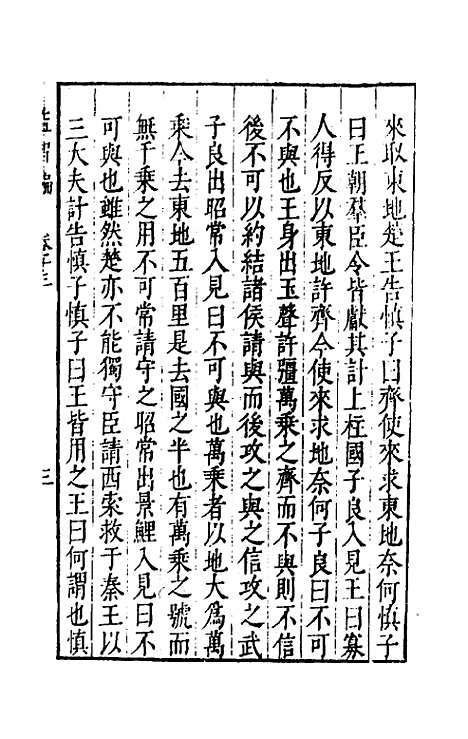 來取東地楚王告慎子曰齊使來求東地奈何慎子
曰王朝羣臣令皆獻其計上柱國子良入見王曰寡
人得反以東地許齊今使來求地奈何子良曰不可
不與也王身出玉聲許疆萬乘之齊而不與則不信
後不可以約結諸侯請與而後攻之與之信攻之武
子良出昭常入見曰不可與也萬乘者以地大為萬
乘今去東地五百里是去國之半也有萬乘之號而
無千乘之用不可常請守之昭常出景鯉入見曰不
可與也雖然楚亦不能獨守臣請西索救于秦王以
三大夫計告慎子慎子曰王皆用之王曰何謂也慎
三